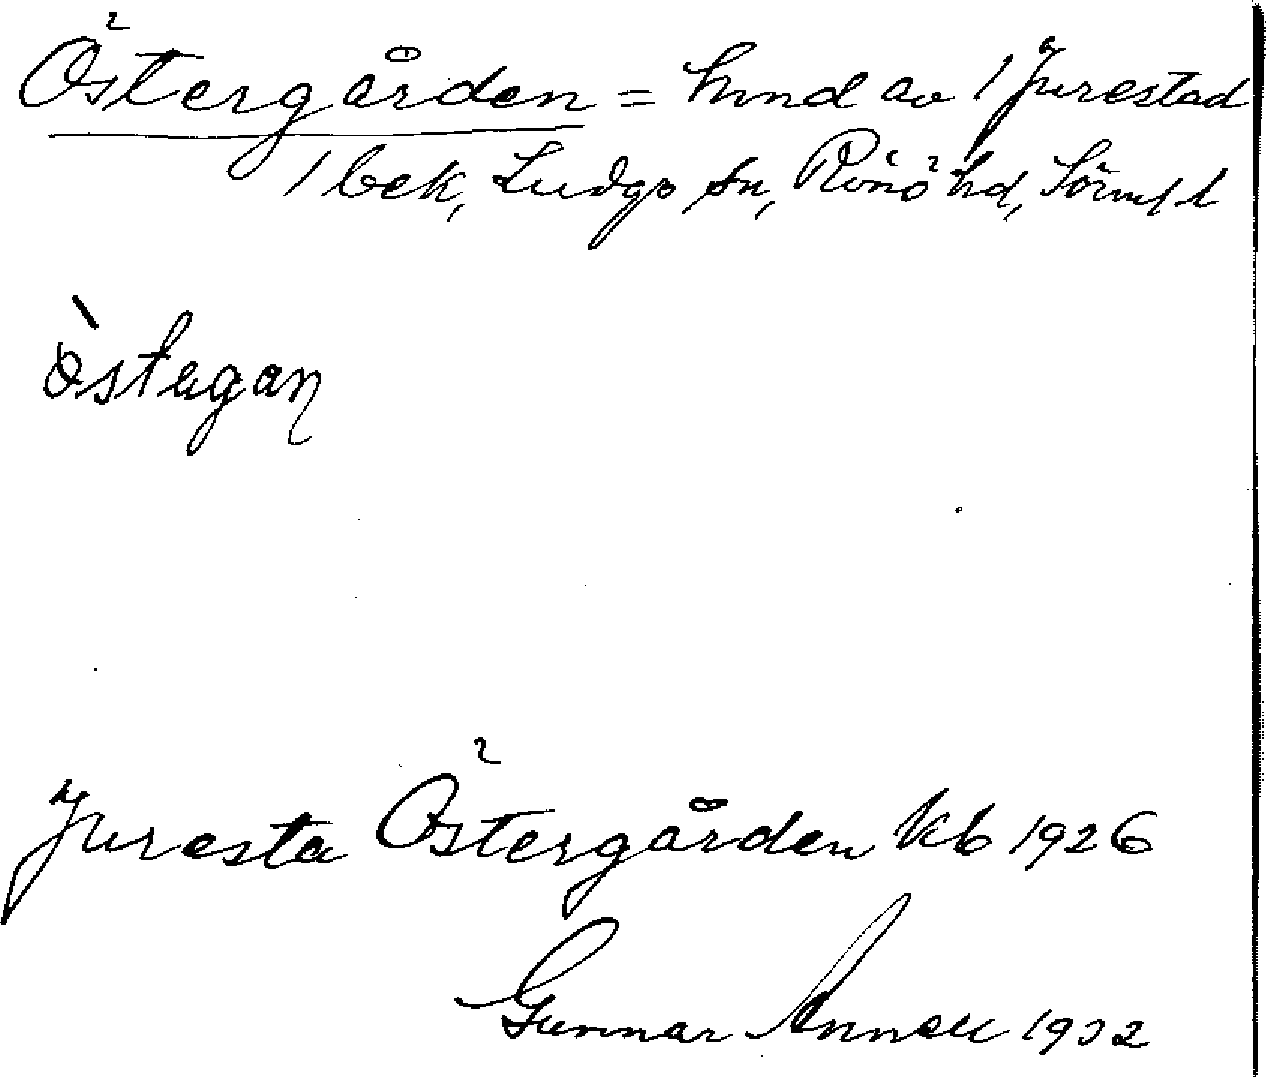 Östergården = hmd av 1 Jurestad
1 bek, Ludgo sn, Rönö hd, Sörml l
östagan
Juresta Östergården kb 1926
Gunnar 1932